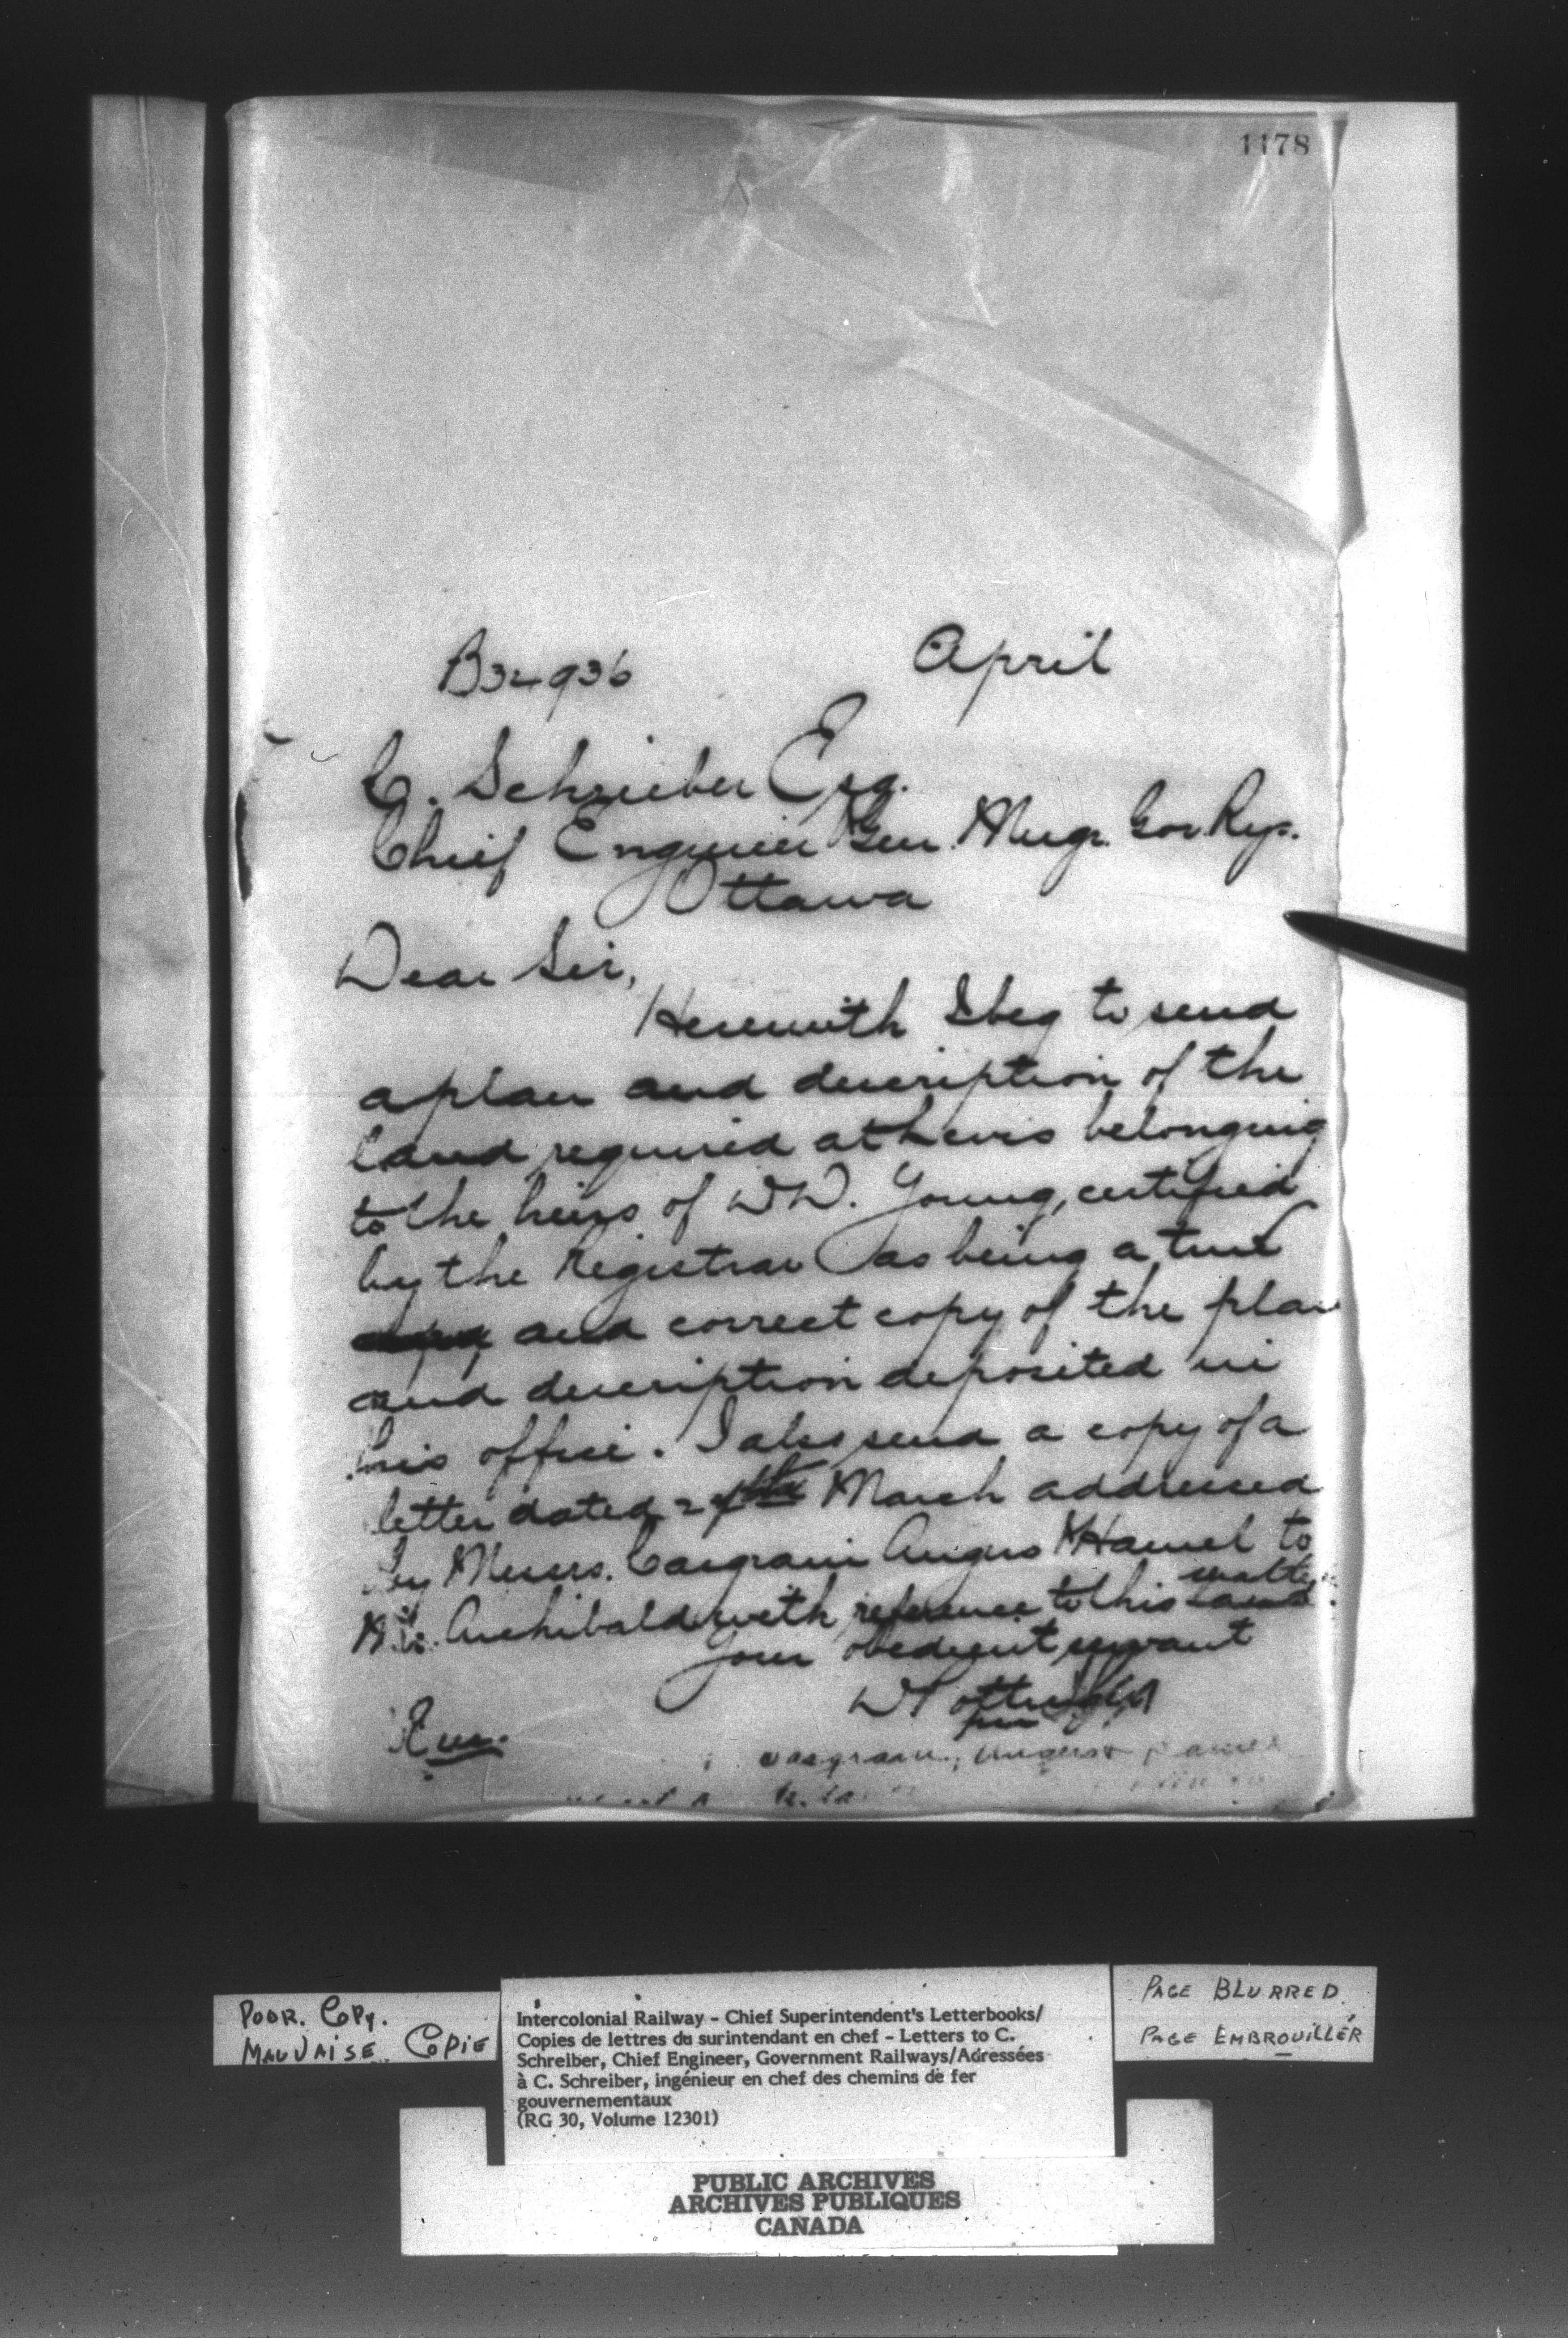 1178
B32936 April
C. Schrieber Esq.
Chief Engineer Gen. Mngr. Gov Rys.
Ottawa
Dear Sir,
Herewith I beg to send
a plan and description of the
land required at Levis belonging
to the heirs of W.W. Young, certified
by the Registrar as being a true
and correct copy of the plan
and description deposited in
his office. I also send a copy of a
letter dated March addressed
by Messrs. Casgrain Angers & Hamel to
matter
Archibald with reference to this land.
Your obedient servant
D Pottinger
Casgrain, Angers &
POOR. COPY.
MAUVAISE COPIE
Intercolonial Railway - Chief Superintendent's Letterbooks/
Copies de lettres du surintendant en chef - Letters to C.
Schreiber, Chief Engineer, Government Railways/Adressées
à C. Schreiber, ingénieur en chef des chemins de fer
gouvernementaux
(RG 30, Volume 12301)
PAGE BLURRED
PAGE EMBROUILLÉR
PUBLIC ARCHIVES
ARCHIVES PUBLIQUES
CANADA